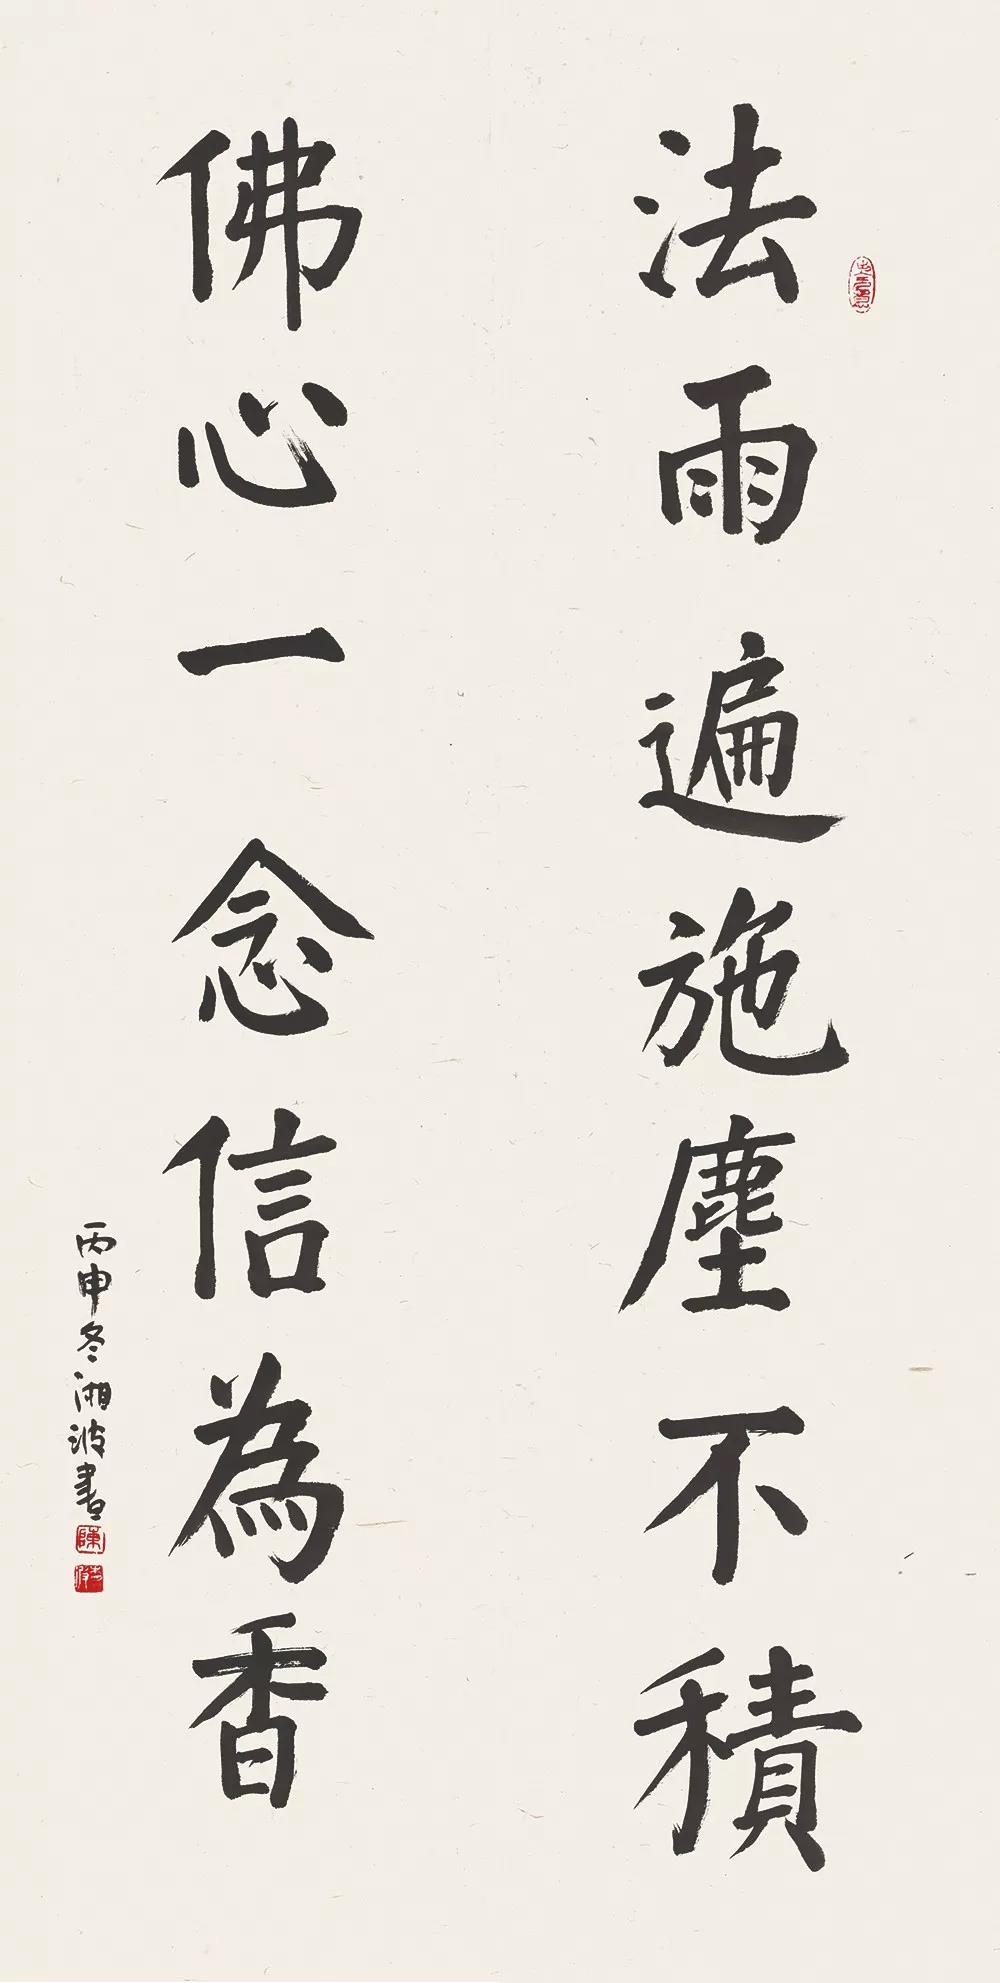 法雨遍施塵不積
佛心一念信為香
丙申冬湘波書
陳